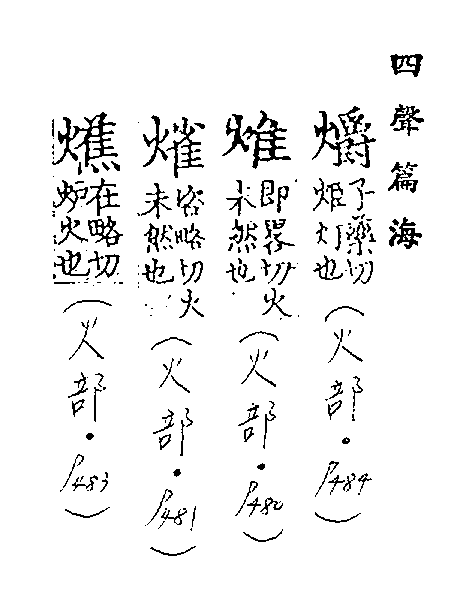 四聲篇海
爝
子藥切
炬灯也
(火部.P484)
即畧切火
未然也
(火部.P480)
咨略切火
未然也
(火部.P481)
燋
在略切
炉火也
(火部.P483)